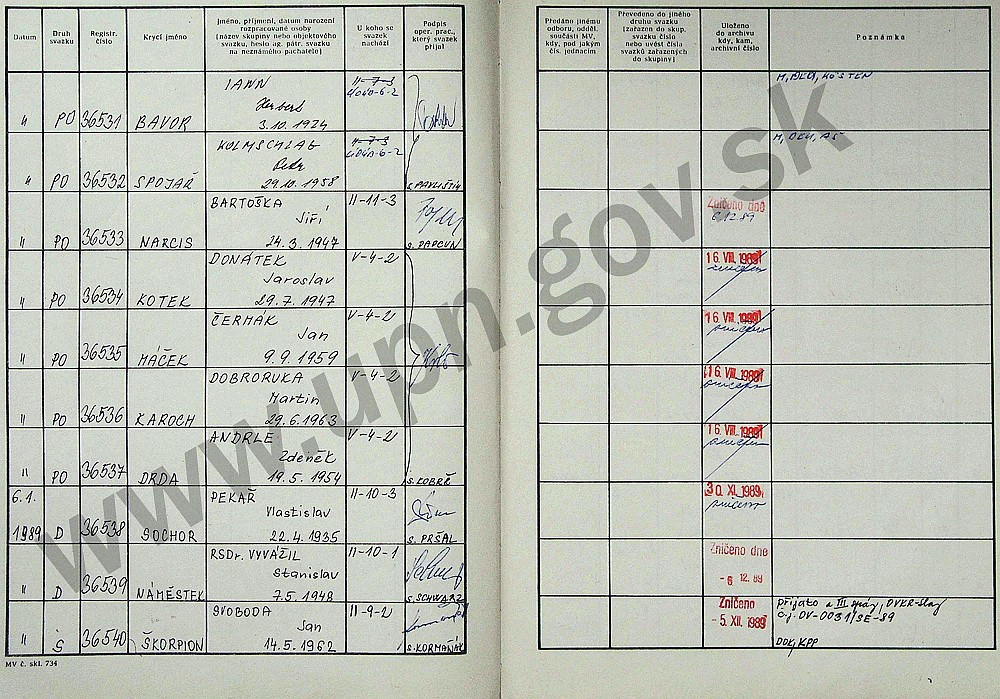 Datum
Druh svazku
Registr. číslo
Krycí jméno
Jméno, příjmení, datum narození
rozpracované osoby
(název skupiny nebo objektového
svazku, heslo ag. pátr. svazku
na neznámého pachatele)
U koho se
svazek
nachází
Podpis
oper. prac.,
který svazek
přijal
Předáno jinému
odboru, odděl.
MV, kdy,
kdy, pod jakým
čís. jednacím
Převedeno do jiného
druhu svazku
(zařazen do skup.
svazku číslo
nebo uvést čísla
svazků zařazených
do skupiny)
Uloženo
do archivu
kdy, kam,
archivní číslo
Poznámka
" PO 36531 BAVOR IANN Herbert 3.10.1924 II-7-3
" PO 36532 SPOJAŘ KOLMSCHLAG Petr 29.10.1958 II-7-3 s. PAVLIŠTÍK
" PO 36533 NARCIS BARTOŠKA Jiří 24.3.1947 II-11-3 s. PAPCUN Zničeno dne 6.12.89
" PO 36534 KOTEK DONÁTEK Jaroslav 29.7.1947 V-4-2 16. VIII. 1989
" PO 36535 MÁČEK ČERMÁK Jan 9.9.1959 V-4-2 16. VIII. 1989
" PO 36536 KAROCH DOBRORUKA Martin 29.6.1963 V-4-2 16. VIII. 1989
" PO 36537 DRDA ANDRLE Zdeněk 19.5.1954 V-4-2 16. VIII. 1989
6.1. 1989 D 36538 SOCHOR PEKAŘ Vlastislav 22.4.1935 II-10-3 s. PRŠAL 30. XI. 1989
" D 36539 NÁMĚSTEK RSDr. VYVÁŽIL Stanislav 7.5.1948 II-10-1 s. SCHWARZ Zničeno dne -6 12. 89
" S 36540 ŠKORPION SVOBODA Jan 14.5.1962 II-9-2 s. KORMAŇÁK Zničeno -5. XII. 1989 přijato
č.j. OV-0031/SE-89
MV č. skl. 734
www.upn.gov.sk